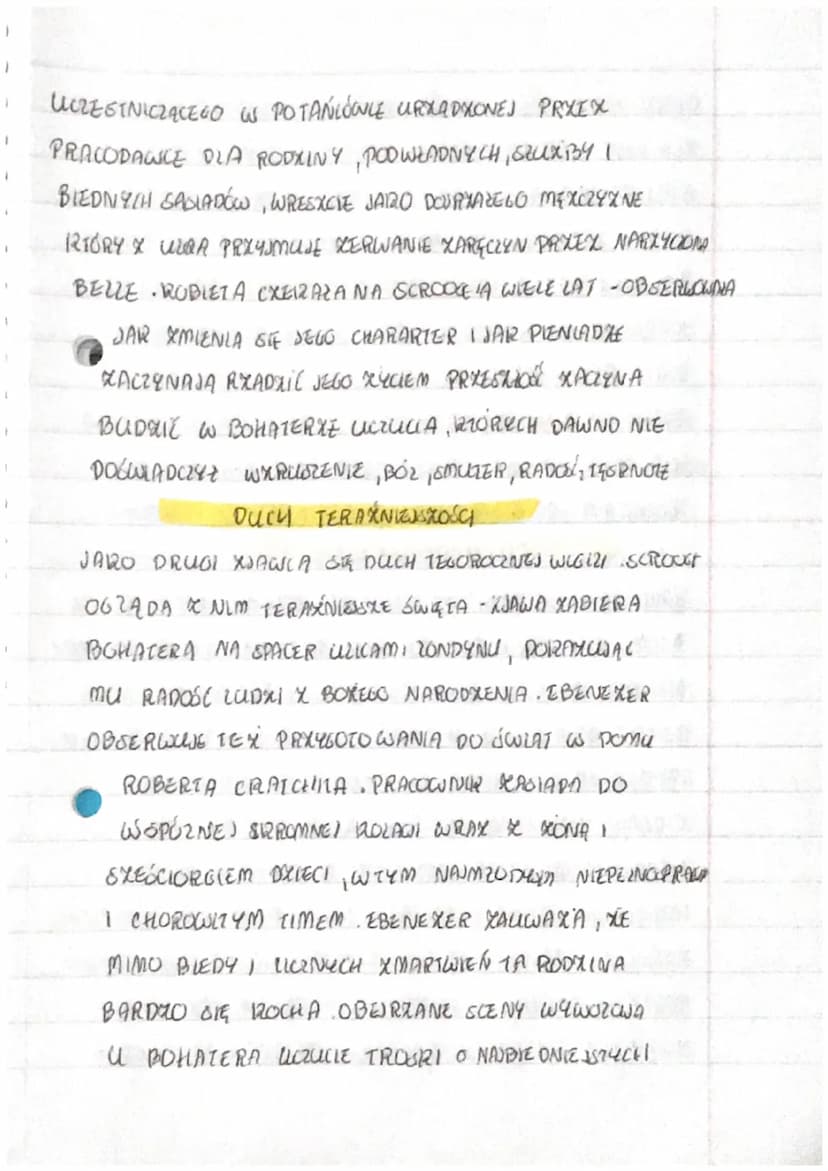 UCZESTNICZĄCEGO W POTAŃCÓWCE URZĄDZONEJ PRZEZ
PRACODAWCE DLA RODZINY , PODWŁADNYCH , SŁUŻBY I
BIEDNYCH SĄSIADÓW , WRESZCIE JAKO DOJRZAŁEGO MĘŻCZYZNE
KTÓRY Z ULGĄ PRZYJMUJE ZERWANIE ZARĘCZYN PRZEZ NARZYCZONĄ
BELLE . KOBIETA CZEKAŁA NA SCROOGE'A WIELE LAT - OBSERWOWAŁA
JAK ZMIENIA SIĘ JEGO CHARAKTER I JAK PIENIĄDZE
ZACZYNAJĄ RZĄDZIĆ JEGO ŻYCIEM PRZESZŁOŚĆ ZACZYNA
BUDZIĆ W BOHATERZE UCZUCIA , KTÓRYCH DAWNO NIE
DOŚWIADCZYŁ WZRUSZENIE , BÓL , SMUTEK , RADOŚĆ , TĘSKNOTE
DUCH TERAŹNIEJSZOŚCI
JAKO DRUGI ZJAWIA SIĘ DUCH TEGOROCZNEJ WIGILI . SCROOGE
OGLĄDA Z NIM TERAŹNIEJSZE ŚWIĘTA - ZJAWA ZABIERA
BOHATERA NA SPACER ULICAMI LONDYNU , POKAZUJĄC
MU RADOŚĆ LUDZI Z BOŻEGO NARODZENIA . EBENEZER
OBSERWUJE TEŻ PRZYGOTOWANIA DO ŚWIĄT W DOMU
ROBERTA CRATCHITA . PRACOWNIK ZASIADA DO
WSPÓLNEJ SKROMNEJ KOLACJI WRAZ Z ŻONĄ I
SZEŚCIORGIEM DZIECI , W TYM NAJMŁODSZYM
I CHOROWITYM TIMEM . EBENEZER ZAUWAŻA , ŻE
MIMO BIEDY I LICZNYCH ZMARTWIEŃ TA RODZINA
BARDZO SIĘ KOCHA . OBEJRZANE SCENY WYWOŁUJĄ
U BOHATERA UCZUCIE TROSKI O NAJBIEDNIEJSZYCH